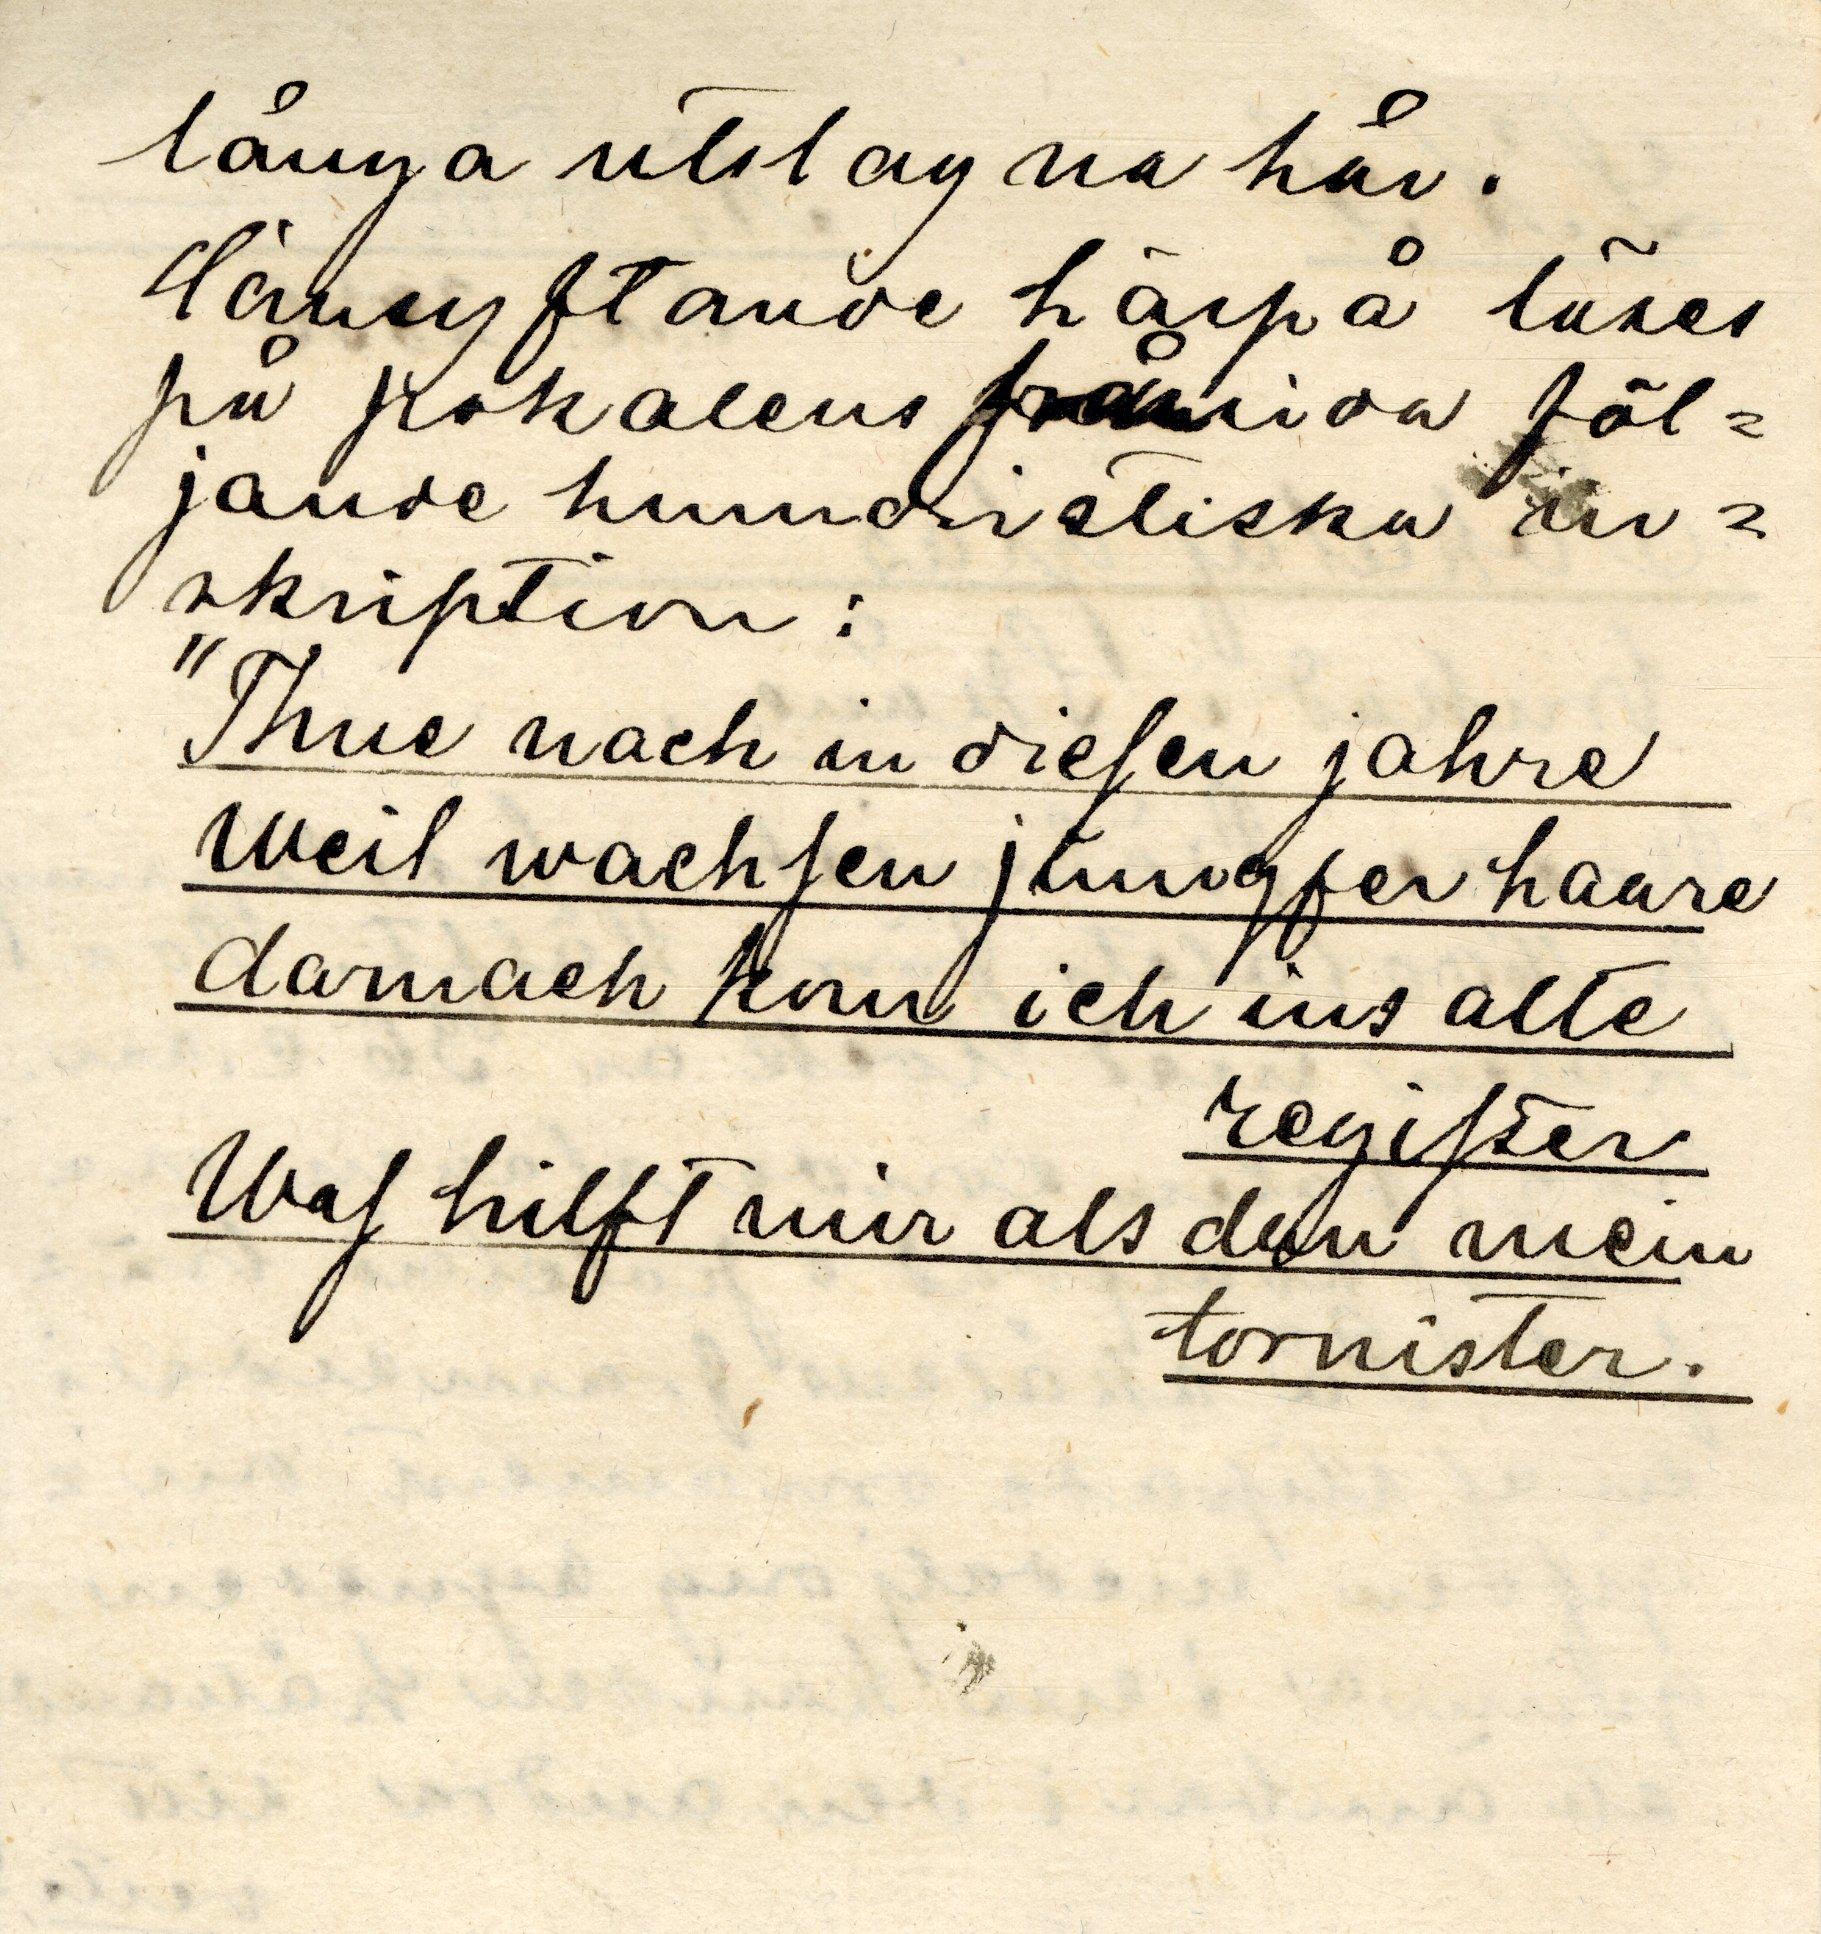 långa utslagna hår.
Hänsyftande härpå läses
på pokalens framsida föl=
jande humoristiska in=
skription:
"Thue nach in dieſen jahre
Weil wachſen jungfer haare
darnach kom ich ins alte
regiſter
Waſ hilft mir als den mein
tornister.